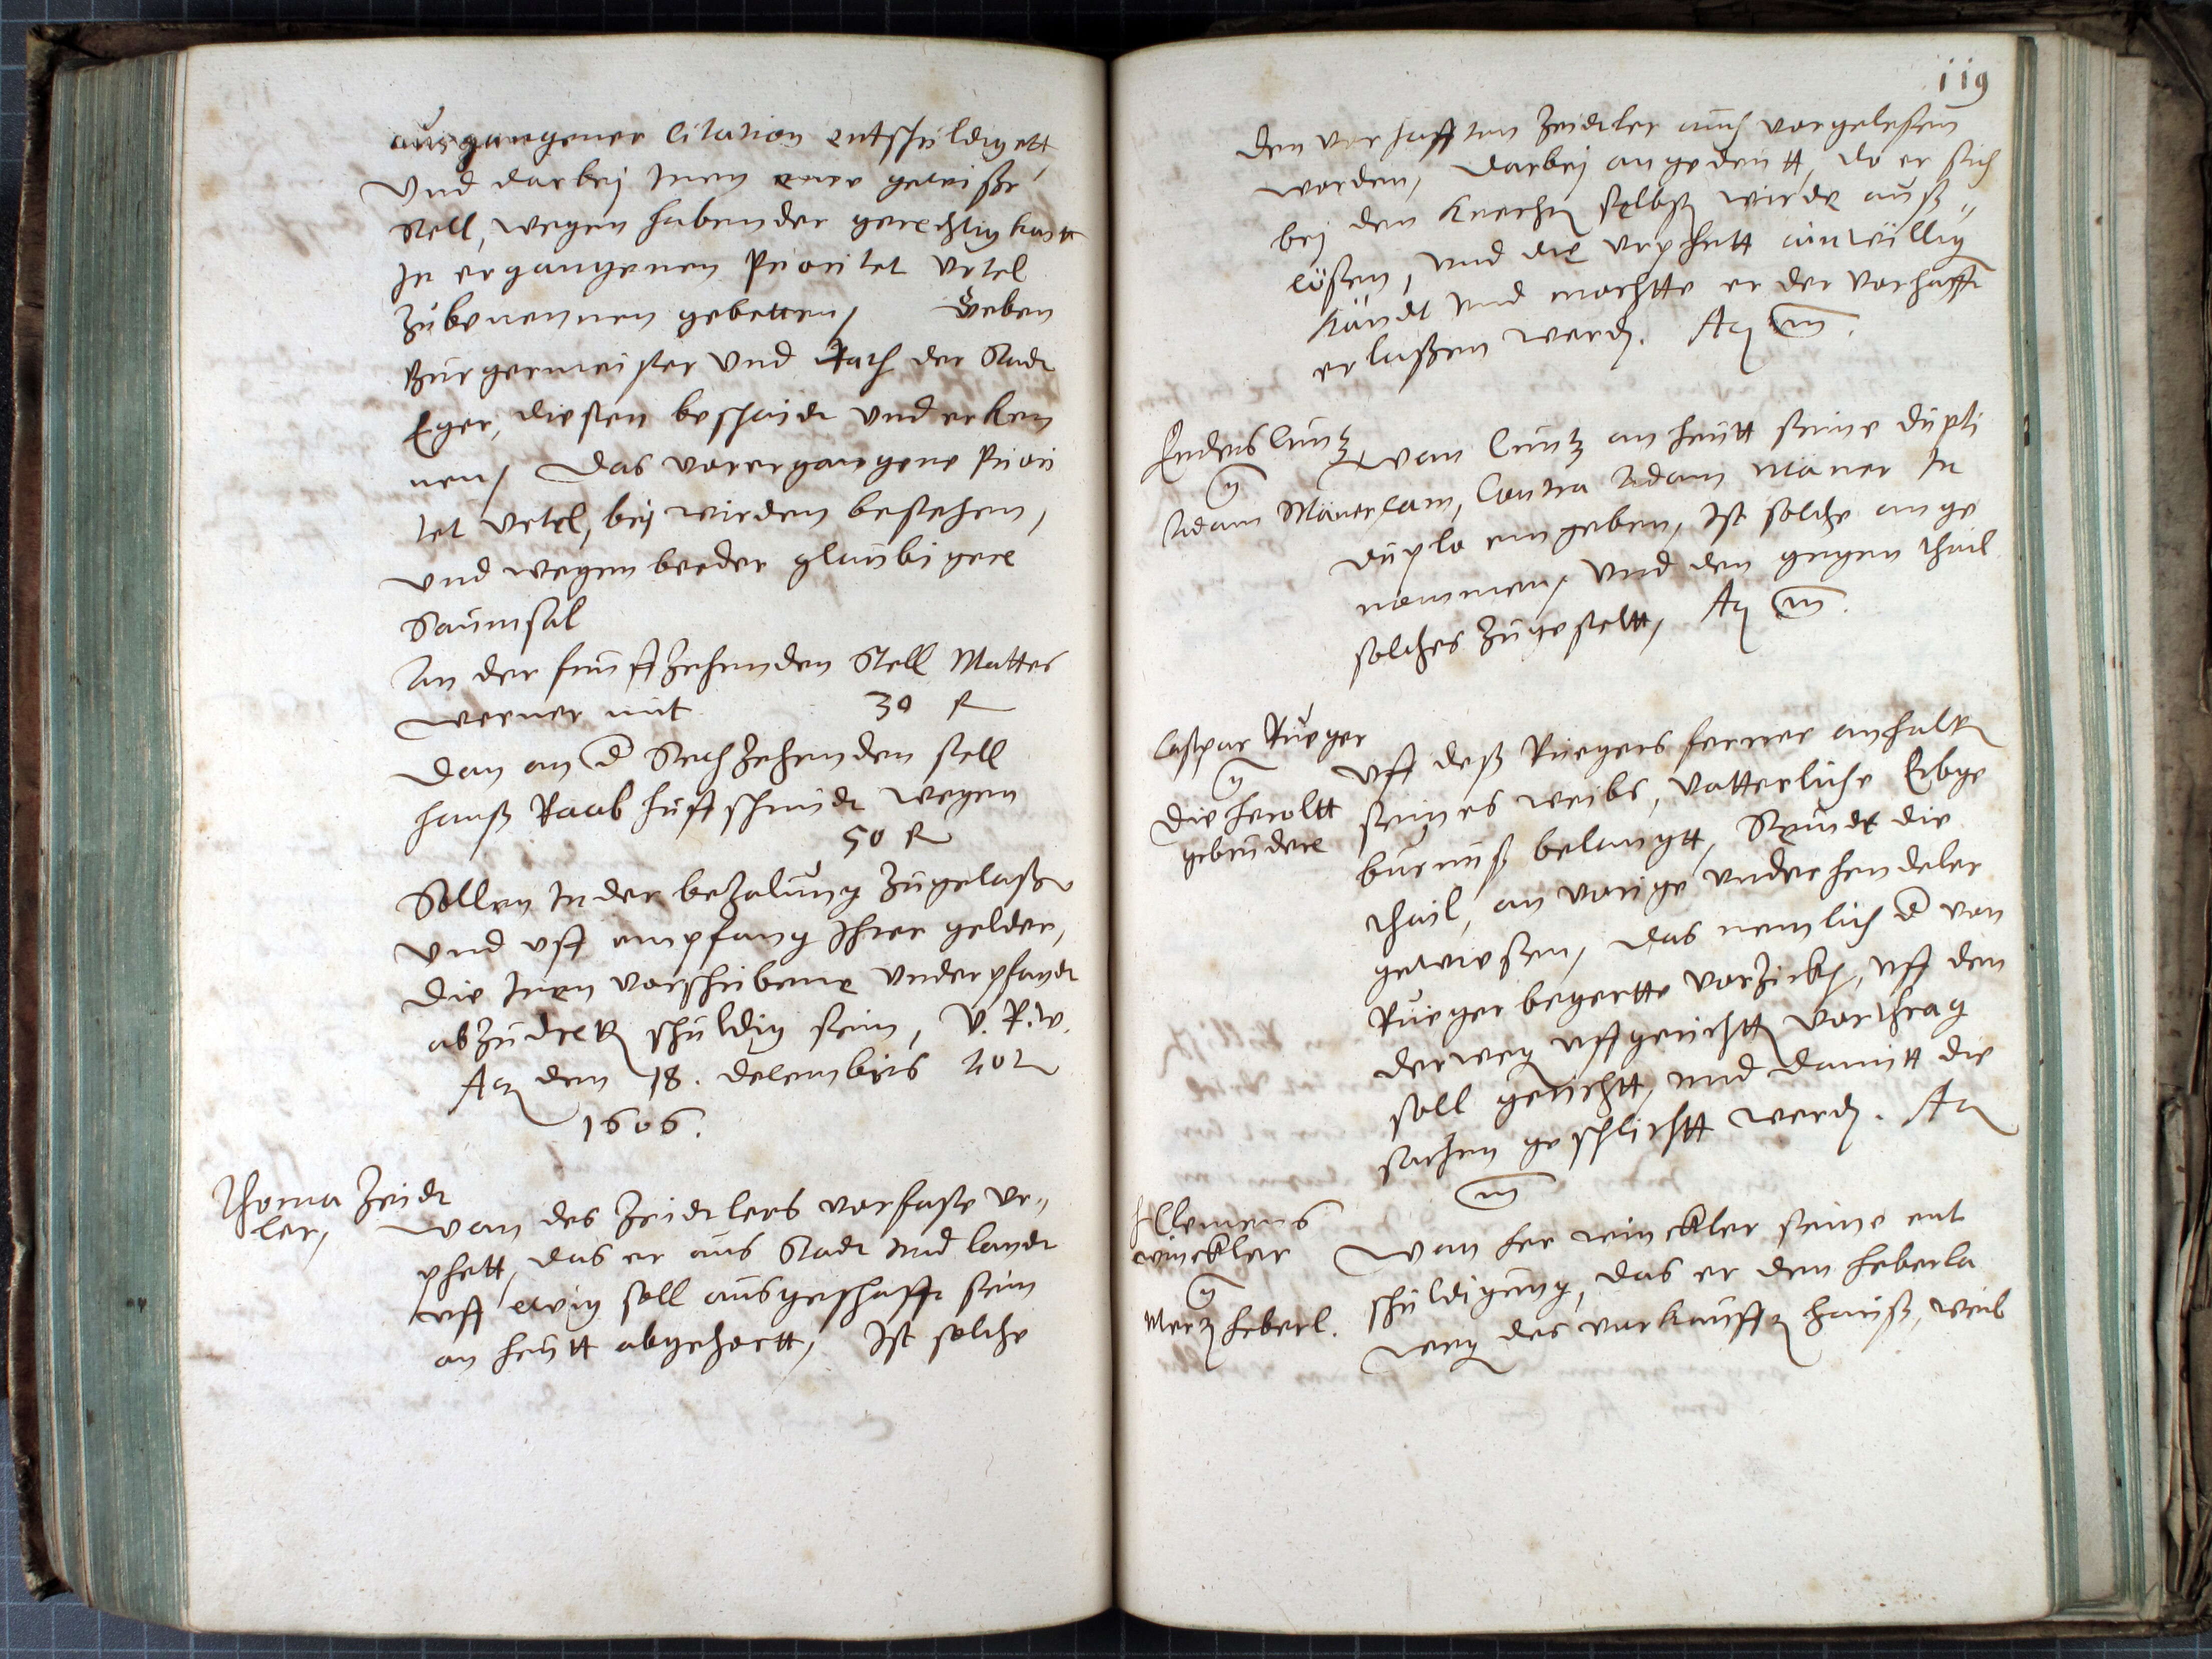 ausgangener Citation entschuldigett,
Und darbej Inen eine gewiße
Stell, wegen habender gerechtigkaitt
In ergangenen Prioritet Urtel
Zubenennen gebetten, Geben
Burgermeister Und Rath der Stadt
Eger, diesen beschaidt Und erken
nen, Das vorergangene Priori
tet Urtel, bej wirden bestehen,
Und wegen beeder glaubigere
Saumsal
An der funffzehenden Stell Mattes
Werner mit 30 R
Dan an d Sechzehenden stell
Hanß Raab Huffschmidt wegen
50 R
Sollen In der bezalung zugelaßen
Und uff empfang Ihrer gelder,
die Inen vorschribene Underpfandt
abzudretten schuldig sein, V. R. w.
Act den 18. Decembris Ao
1606.
Thoma Zeidt
ler,
Wan des Zeidtlers vorfaste Ur„
phett, das er aus Stadt und landt
uff ewig soll ausgeschafft sein
an heutt abgehortt, Ist solche
119
den verhafften Zeidtler auch vorgeleßen
worden, darbej angedeutt, do er sich
bej den Knechten selbst wirde auß„
lößen, und die Urphett ainwillig
Kandt und mochtte er der vorhafft
erlaßen werden. Act
Enders Cuntz
Adam Mäner
Wan Cuntz an heutt seine dupli
cam, Contra Adam Mäner In
duplo eingeben, Ist solche ange
nommen, Und den gegen thail
solches zugestelt, Act
Caspar Rueger
die Heroltt
gebrudere
Uff deß Ruegers ferner anhalten
seines weibs, Vatterliche Erbge
burnuß belangtt, Seindt die
thail, an vorige Underhendeler
gewießen, das nemlich d von
Rueger begertte vorzickt, uff den
derweg uffgerichtten Vorthrag
soll gerichtt, und damitt die
sachen geschlichtt werden. Act
H Clemens
winckler
Mertz Heberl.
Wan her winckler seine ent
schuldigung, das er den Heberla
weg des vorkaufften Hauß, weil